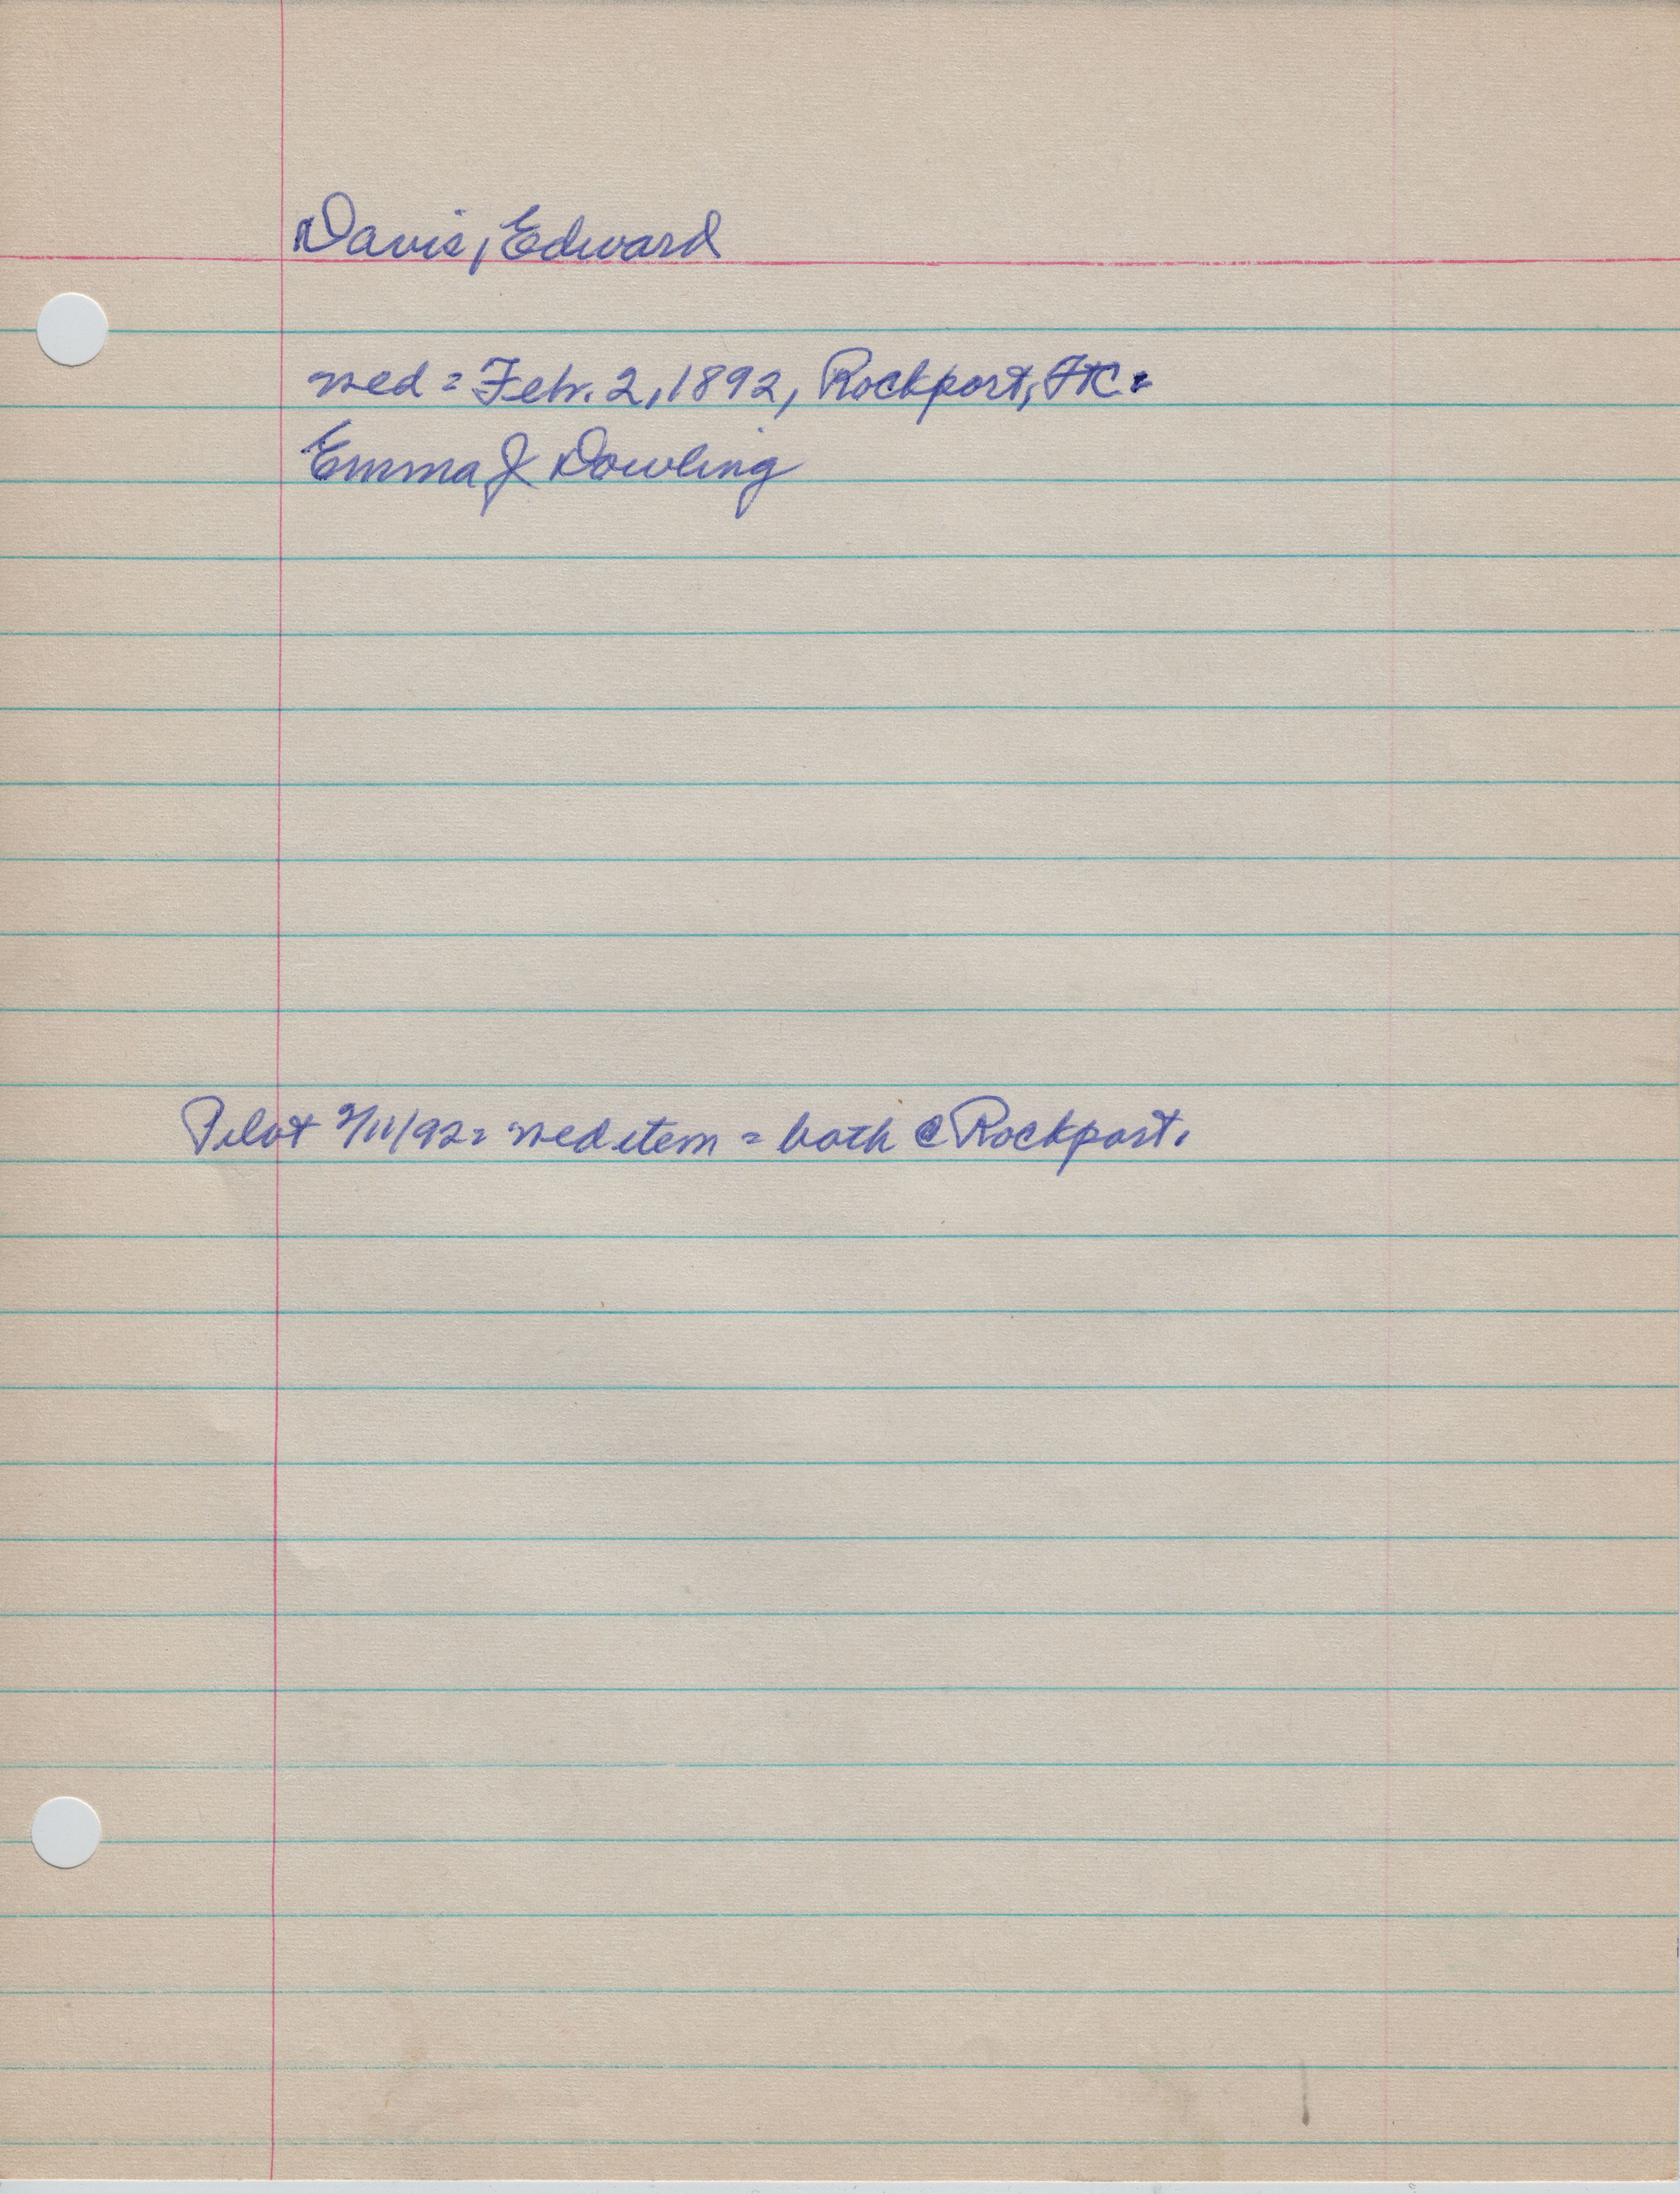 Davis, Edward
wed = Feb. 2, 1892, Rockport, TC =
Emma J Dowling
Pilot 2/11/92 = wed item = both @ Rockport.